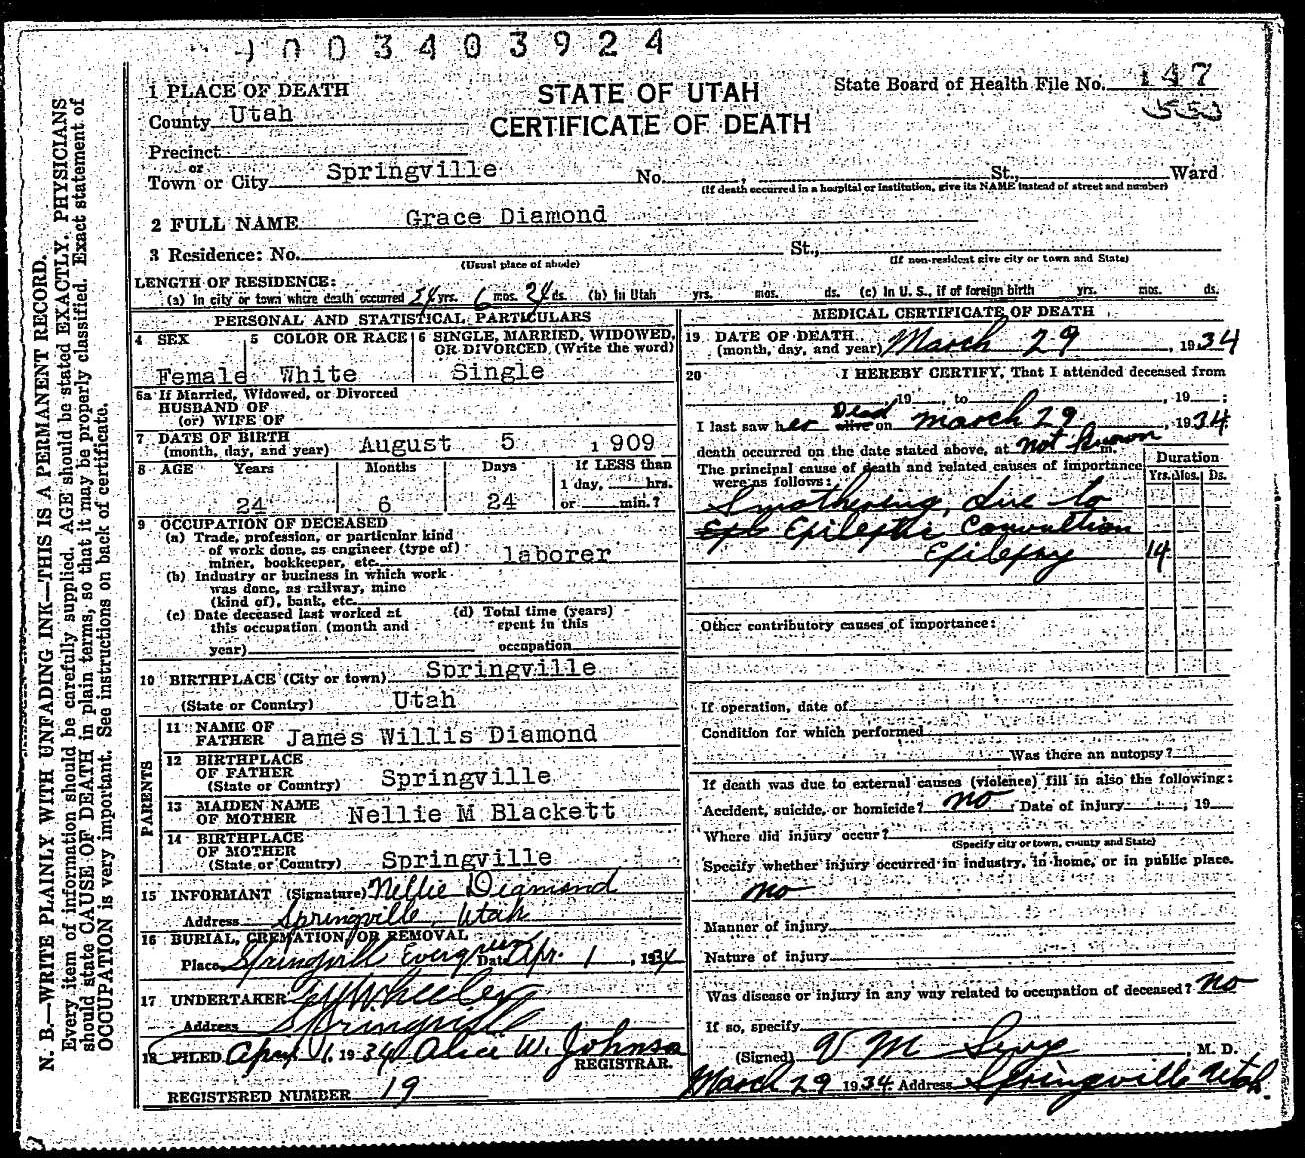 1003403924
1 PLACE OF DEATH
STATE OF UTAH
State Board of Health File No. 147
County Utah
CERTIFICATE OF DEATH
553
Precinct
or
Town or City Springville No. , St., Ward
(If death occurred in a hospital or institution, give its NAME instead of street and number)
2 FULL NAME Grace Diamond
3 Residence: No. St.,
(Usual place of abode) (If non-resident give city or town and State)
LENGTH OF RESIDENCE:
(a) In city or town where death occurred 24 yrs. 6 mos. 24 ds. (b) in Utah yrs. mos. ds. (c) In U. S., if of foreign birth yrs. mos. ds.
PERSONAL AND STATISTICAL PARTICULARS
4 SEX 5 COLOR OR RACE 6 SINGLE, MARRIED, WIDOWED,
OR DIVORCED (Write the word)
Female White Single
6a If Married, Widowed, or Divorced
HUSBAND OF
(or) WIFE OF
7 DATE OF BIRTH
(month, day, and year) August 5 1909
8 AGE Years Months Days If LESS than
1 day, hrs.
24 6 24 or min.?
9 OCCUPATION OF DECEASED
(a) Trade, profession, or particular kind
of work done, as engineer (type of)
miner, bookkeeper, etc. laborer
(b) Industry or business in which work
was done, as railway, mine
(kind of), bank, etc.
(c) Date deceased last worked at (d) Total time (years)
this occupation (month and spent in this
year) occupation
10 BIRTHPLACE (City or town) Springville
(State or Country) Utah
PARENTS
11 NAME OF
FATHER James Willis Diamond
12 BIRTHPLACE
OF FATHER
(State or Country) Springville
13 MAIDEN NAME
OF MOTHER Nellie M Blackett
14 BIRTHPLACE
OF MOTHER
(State or Country) Springville
15 INFORMANT (Signature) Nellie Diamond
Address Springville, Utah
16 BURIAL, CREMATION OR REMOVAL
Place Springville Evergreen Date Apr. 1, 1934
17 UNDERTAKER Wheeler
Address Springville
18 FILED April 1, 1934 Alice W. Johnson
REGISTRAR.
REGISTERED NUMBER 19
MEDICAL CERTIFICATE OF DEATH
19 DATE OF DEATH
(month, day, and year) March 29, 1934
20 I HEREBY CERTIFY, That I attended deceased from
, 19 , to , 19 ;
Dead
I last saw her alive on march 29, 1934
death occurred on the date stated above, at not known m.
The principal cause of death and related causes of importance
were as follows:
Duration
Yrs. Mos. Ds.
Smothering, due to
Epileptic Convultion
Epilepsy 14
Other contributory causes of importance:
If operation, date of
Condition for which performed
Was there an autopsy?
If death was due to external causes (violence) fill in also the following:
Accident, suicide, or homicide? no Date of injury , 19
Where did injury occur?
(Specify city or town, county and State)
Specify whether injury occurred in industry, in home, or in public place.
no
Manner of injury
Nature of injury
Was disease or injury in any way related to occupation of deceased? no
If so, specify
(Signed) V M Sevy, M. D.
March 29 1934 Address Springville Utah.
N. B.—WRITE PLAINLY WITH UNFADING INK—THIS IS A PERMANENT RECORD.
Every item of information should be carefully supplied. AGE should be stated EXACTLY. PHYSICIANS
should state CAUSE OF DEATH in plain terms, so that it may be properly classified. Exact statement of
OCCUPATION is very important. See instructions on back of certificate.